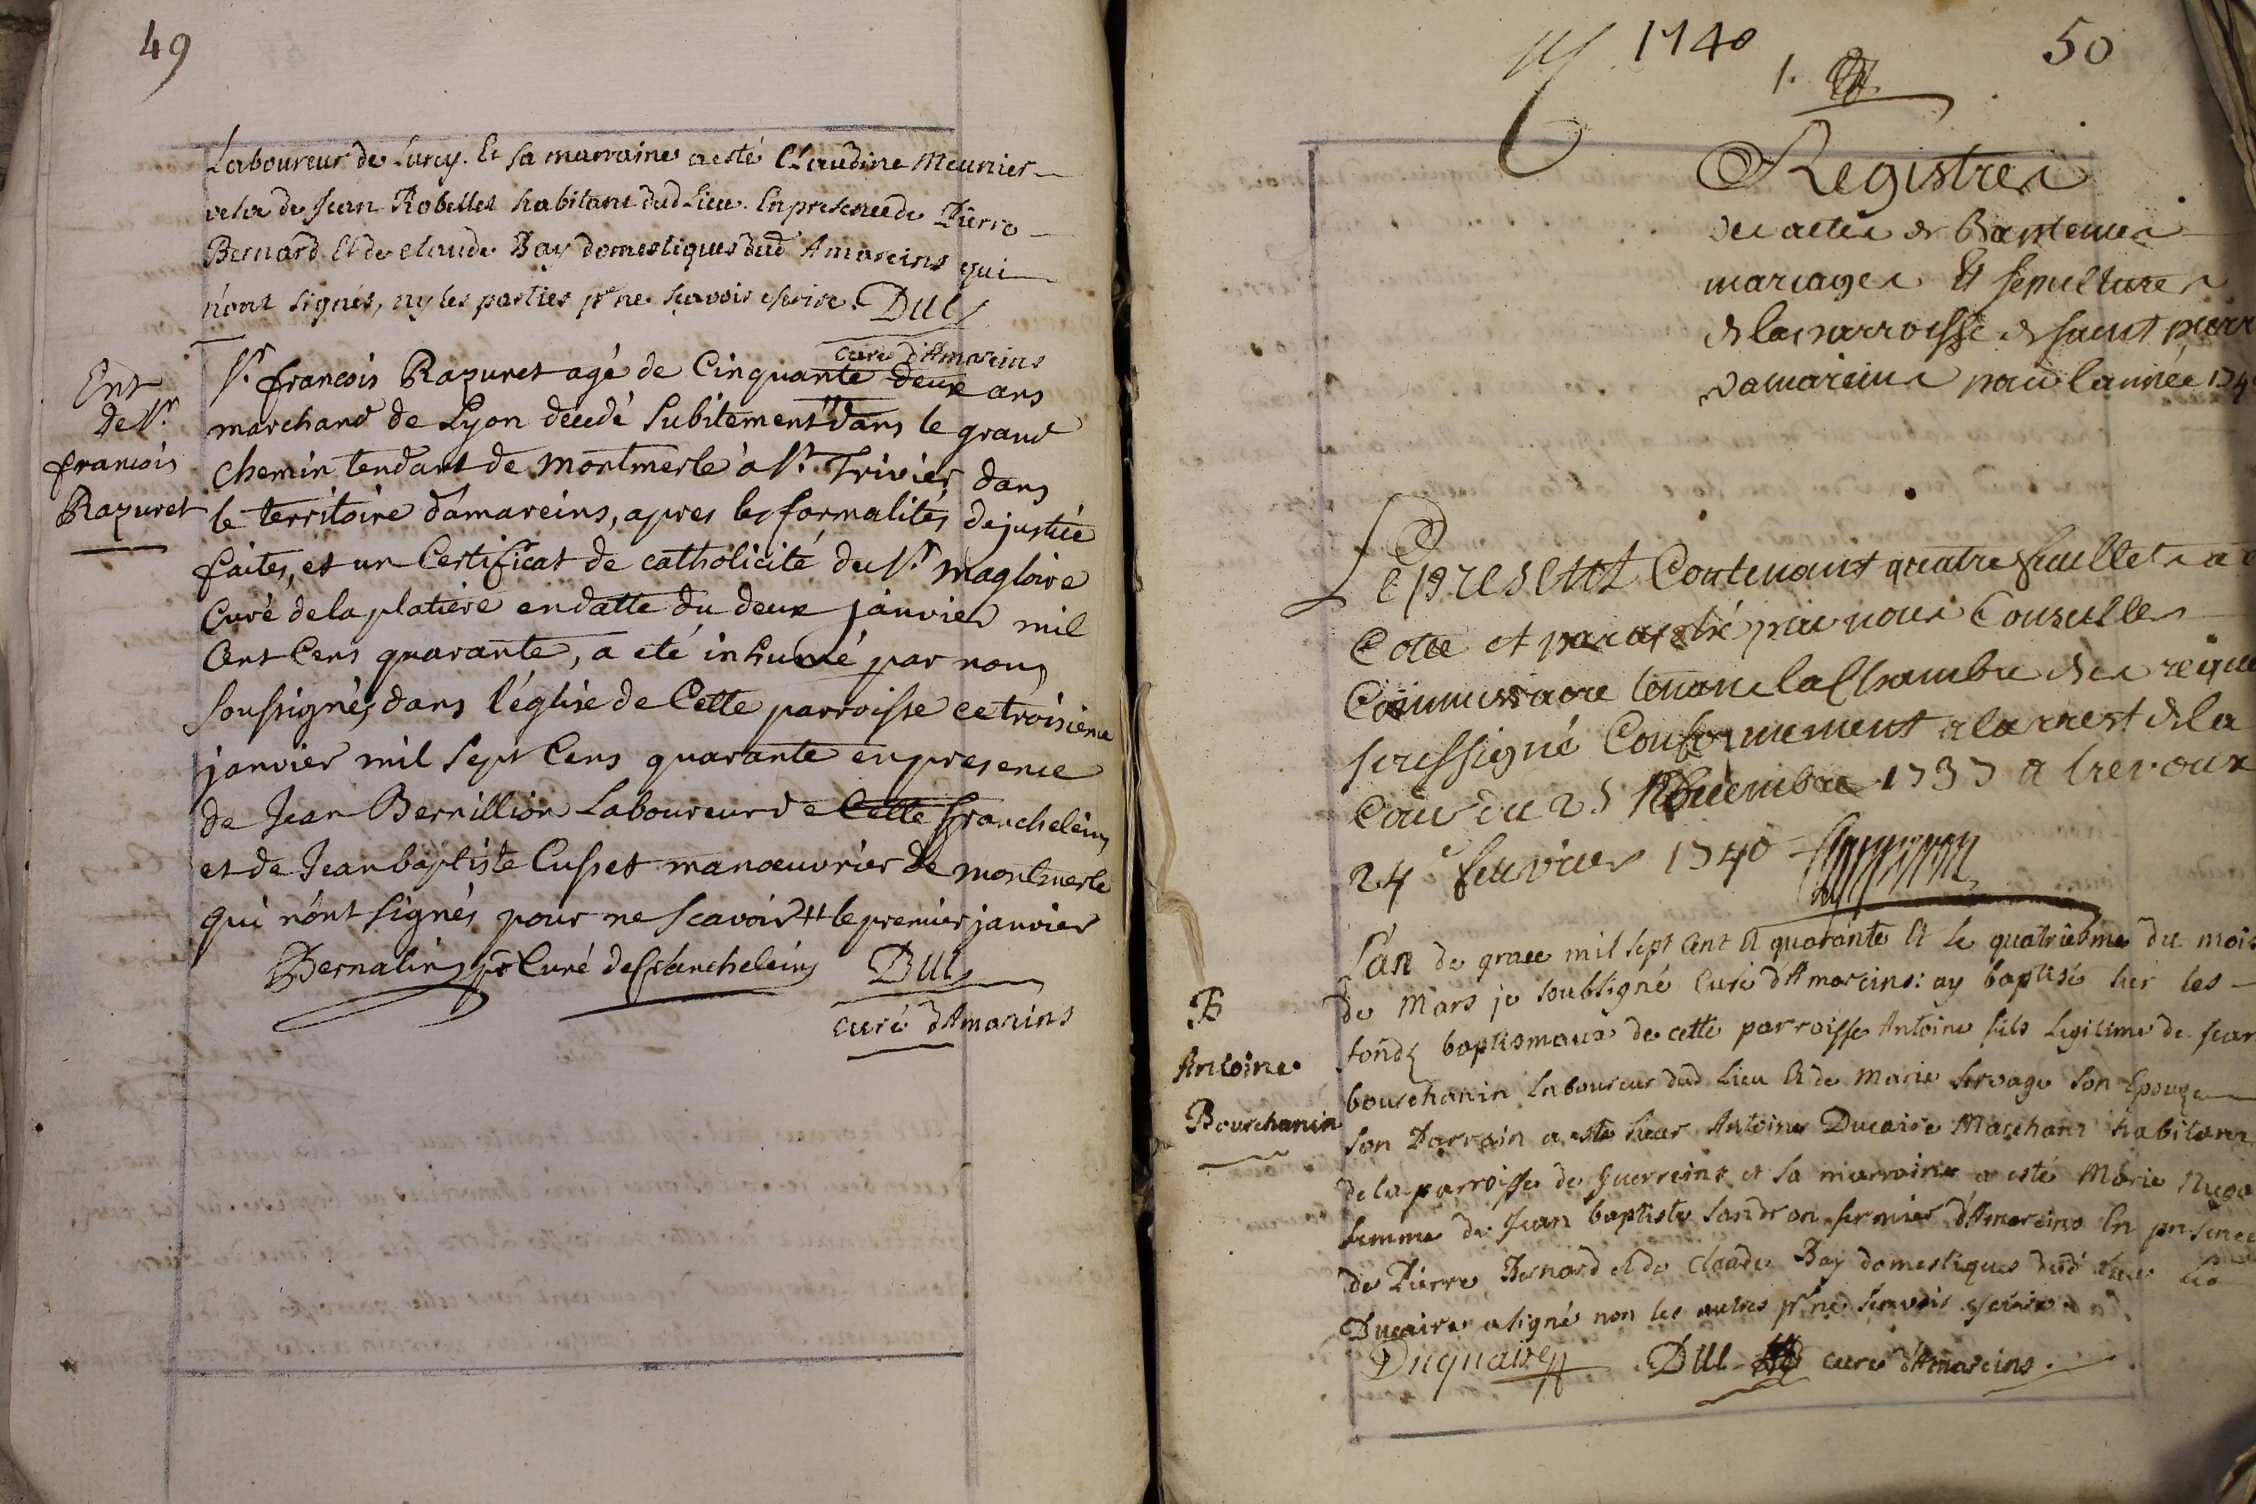 49
Laboureur de Lurcy. Et sa marraine a esté Claudine Meunier
veive de Jean Robellet habitant dud Lieu. En presence de Pierre
Bernard et de Claude Bay domestiques dud Amareins qui
n'ont signés, ny les parties pr ne sçavoir escrire. Dul
curé d'Amareins
Ent
de Sr
francois
Razuret
Sr francois Razuret agé de Cinquante deux ans
marchand de Lyon decedé subitement # dans le grand
chemin tendant de montmerle à St Trivier dans
le territoire d'amareins, apres les formalités de justice
faites, et un Certificat de catholicité du Sr magloire
Curé de la platiere en datte du deux janvier mil
Cens quarante, a eté inhumé par nous
soussignés dans l'église de Cette parroisse ce troisieme
janvier mil sept Cens quarante en presence
de Jean Bernillion Laboureur de Cette francheleins
et de Jean baptiste Cusset manoeuvrier de montmerle
qui n'ont signés pour ne scavoir # le premier janvier
Bernalin pr Curé de francheleins Dul
curé d'Amareins
1740
50
1.
Registre
des actes de Baptemes
mariages Et sepultures
de la parroisse de saint pierr
damareins pour l'année 174
Le present Contenant quatre feuillets a
Cotté et paraphé par nous Conseiller
Commissaire tenant la Chambre des reque
soussigné Conformement a larrest de la
Cour du 1737 a trevoux
24e feuvrier 1740
L'an de grace mil sept cent et quarante et le quatriesme du mois
de Mars je soubsigné Curé d'Amareins: ay baptisé sur les
fonds baptismaux de cette parroisse Antoine fils Legitime de Jean
bourchanin Laboureur dud Lieu et de Marie servage son Epouze
son Parrain a esté sieur Antoine Ducaire Marchant habitant
de la parroisse de Guerreins et sa marraine a esté Marie
femme de Jean baptiste Sandron fermier d'Amareins En presence
de Pierre Bernard et de Claude Bay domestiques dud Lieu
Ducaire a signé non les autres pr ne scavoir escrire
B
Antoine
Bourchanin
Duquaire Dul curé d'Amareins.